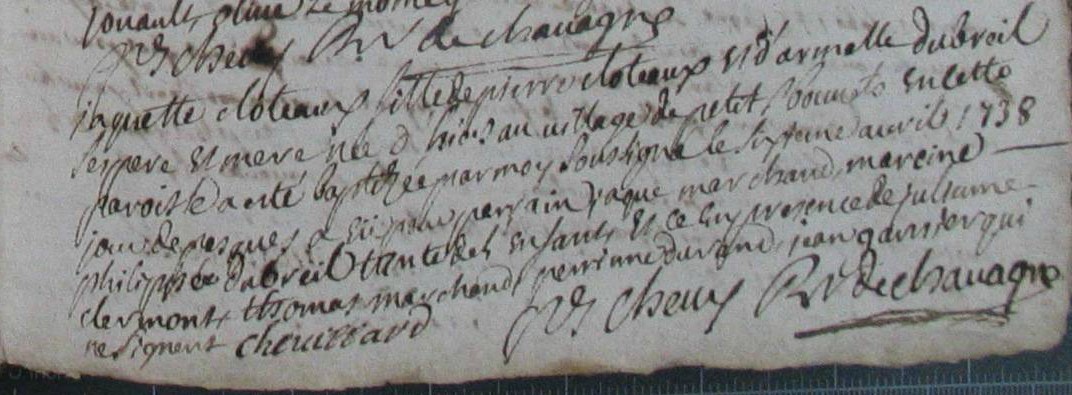 jouault
Rr de chavagne
jaquette cloteaux fille de pierre cloteaux et d'armelle dubreil
ses pere et mere née d'hier au village du petit en cette
paroisse a esté baptizée par moy soussigné le sixieme avril 1738
jour de pasques a eü pour parrain jaque marchand mareine
philippée dubreil tante de l'enfant et ce en presence de
clermont thomas marchand perrinne durand jean garnier qui
ne signent chouissard
Rr de chavagne